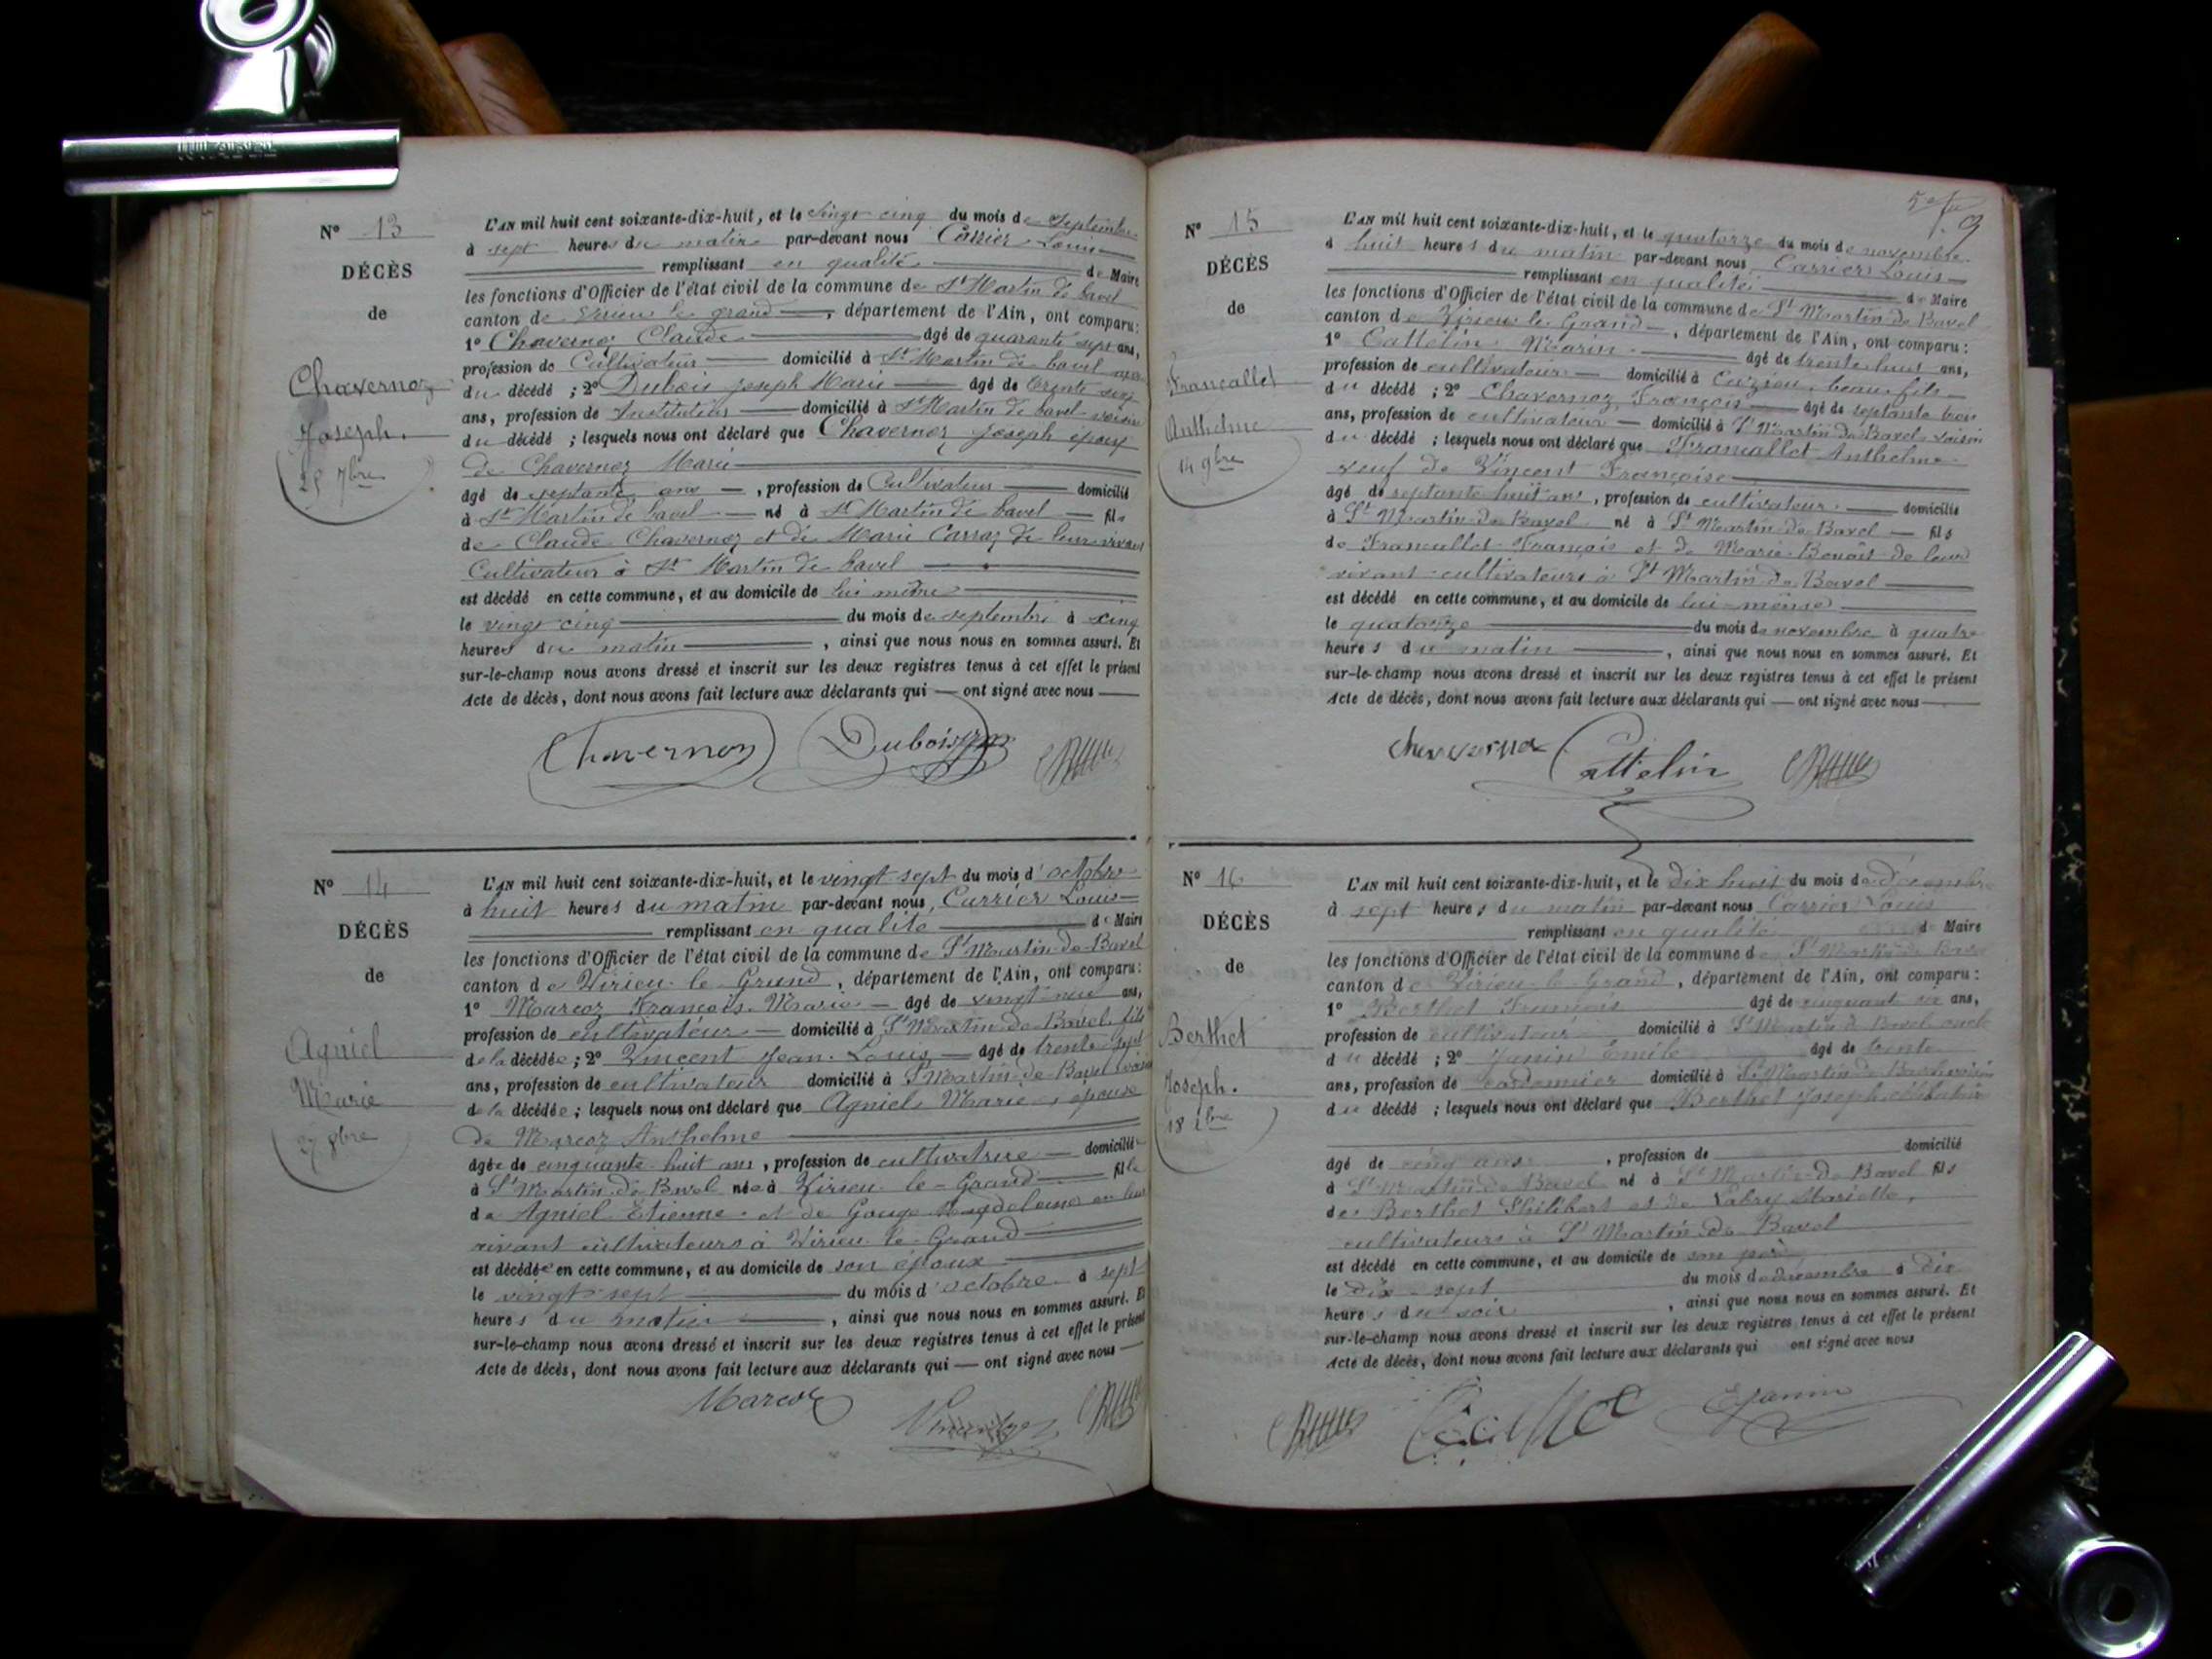 N° 13
DÉCÈS
de
Chavernoz
Joseph.
25 7bre
L'AN mil huit cent soixante-dix-huit, et le vingt cinq du mois de Septembre
à sept heures du matin par-devant nous Carrier Louis
remplissant en qualité de Maire
les fonctions d'Officier de l'état civil de la commune de St Martin de bavel
canton de Virieu le grand, département de l'Ain, ont comparu:
1° Chavernoz Claude âgé de quarante sept ans,
profession de Cultivateur domicilié à St Martin de bavel
du décédé ; 2° Dubois Joseph Marie âgé de trente
ans, profession de Instituteur domicilié à St Martin de bavel voisin
du décédé ; lesquels nous ont déclaré que Chavernoz Joseph époux
de Chavernoz Marie
âgé de septante ans, profession de Cultivateur domicilié
à St Martin de bavel né à St Martin de bavel fils
de Claude Chavernoz et de Marie Carraz de leur vivant
Cultivateur à St Martin de bavel
est décédé en cette commune, et au domicile de lui même
le vingt cinq du mois de septembre à cinq
heures du matin, ainsi que nous nous en sommes assuré. Et
sur-le-champ nous avons dressé et inscrit sur les deux registres tenus à cet effet le présent
Acte de décès, dont nous avons fait lecture aux déclarants qui — ont signé avec nous
Chavernoz Dubois
N° 14
DÉCÈS
de
Agniel
Marie
27 8bre
L'AN mil huit cent soixante-dix-huit, et le vingt sept du mois d'octobre
à huit heures du matin par-devant nous, Carrier Louis
remplissant en qualité de Maire
les fonctions d'Officier de l'état civil de la commune de St Martin-de-Bavel
canton de Virieu-le-Grand, département de l'Ain, ont comparu:
1° Marcoz François-Marie âgé de vingt neuf ans,
profession de cultivateur domicilié à St Martin-de-Bavel fils
de la décédée ; 2° Vincent Jean-Louis âgé de trente sept
ans, profession de cultivateur domicilié à St Martin-de-Bavel voisin
de la décédée ; lesquels nous ont déclaré que Agniel Marie épouse
de Marcoz Anthelme
âgée de cinquante-huit ans, profession de cultivatrice domiciliée
à St Martin-de-Bavel née à Virieu-le-Grand fille
de Agniel Etienne et de Gouge Magdeleine en leur
vivant cultivateurs à Virieu-le-Grand
est décédée en cette commune, et au domicile de son époux
le vingt sept du mois d'octobre à sept
heures du matin, ainsi que nous nous en sommes assuré. Et
sur-le-champ nous avons dressé et inscrit sur les deux registres tenus à cet effet le présent
Acte de décès, dont nous avons fait lecture aux déclarants qui — ont signé avec nous
Marcoz Vincent
9
N° 15
DÉCÈS
de
Francallet
Anthelme
14 9bre
L'AN mil huit cent soixante-dix-huit, et le quatorze du mois de novembre
à huit heures du matin par-devant nous Carrier Louis
remplissant en qualité de Maire
les fonctions d'Officier de l'état civil de la commune de St Martin-de-Bavel
canton de Virieu-le-Grand, département de l'Ain, ont comparu:
1° Cattelin Marin âgé de trente huit ans,
profession de cultivateur domicilié à Cuzieu, beau-fils
du décédé ; 2° Chavernoz François âgé de septante trois
ans, profession de cultivateur domicilié à St Martin-de-Bavel voisin
du décédé ; lesquels nous ont déclaré que Francallet Anthelme
veuf de Vincent Françoise
âgé de septante huit ans, profession de cultivateur domicilié
à St Martin-de-Bavel né à St Martin-de-Bavel fils
de Francallet François et de Marie Benoît de leur
vivant cultivateurs à St Martin-de-Bavel
est décédé en cette commune, et au domicile de lui-même
le quatorze du mois de novembre à quatre
heures du matin, ainsi que nous nous en sommes assuré. Et
sur-le-champ nous avons dressé et inscrit sur les deux registres tenus à cet effet le présent
Acte de décès, dont nous avons fait lecture aux déclarants qui — ont signé avec nous
Cattelin
N° 16
DÉCÈS
de
Berthet
Joseph.
18
L'AN mil huit cent soixante-dix-huit, et le dix huit du mois de décembre
à sept heures du matin par-devant nous Carrier Louis
remplissant en qualité de Maire
les fonctions d'Officier de l'état civil de la commune de St Martin-de-Bavel
canton de Virieu-le-Grand, département de l'Ain, ont comparu:
1° Berthet François âgé de cinquante six ans,
profession de cultivateur domicilié à St Martin de Bavel oncle
du décédé ; 2° Janin Emile âgé de trente
ans, profession de cordonnier domicilié à St Martin-de-Bavel voisin
du décédé ; lesquels nous ont déclaré que Berthet Joseph célibataire
âgé de cinq ans, profession de domicilié
à St Martin-de-Bavel né à St Martin-de-Bavel fils
de Berthet Philibert et de Labry Mariette,
cultivateurs à St Martin-de-Bavel
est décédé en cette commune, et au domicile de son père
le dix-sept du mois de décembre à dix
heures du soir, ainsi que nous nous en sommes assuré. Et
sur-le-champ nous avons dressé et inscrit sur les deux registres tenus à cet effet le présent
Acte de décès, dont nous avons fait lecture aux déclarants qui ont signé avec nous
EJanin